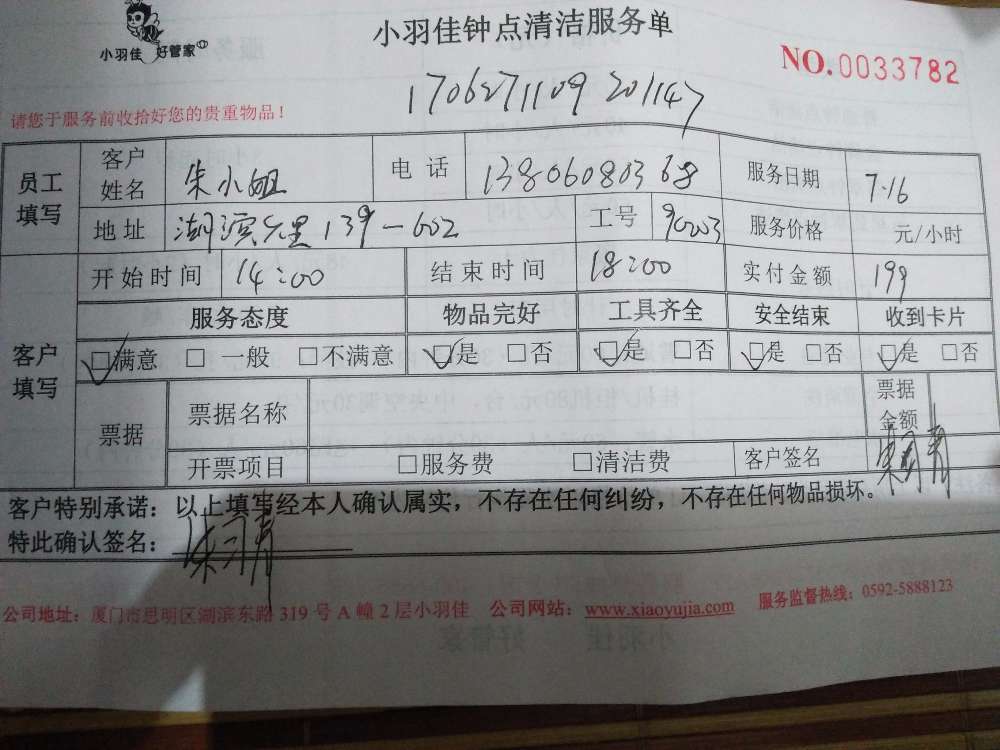 小羽佳 好管家
小羽佳钟点清洁服务单
NO.0033782
1706271109201147
请您于服务前收拾好您的贵重物品!
员工填写 客户姓名 朱小姐 电话 13806080368 服务日期 7.16
地址 湖滨六里139-602 工号 90203 服务价格 元/小时
客户填写 开始时间 14:00 结束时间 18:00 实付金额 199
服务态度 物品完好 工具齐全 安全结束 收到卡片
☑满意 □一般 □不满意 ☑是 □否 ☑是 □否 ☑是 □否 ☑是 □否
票据 票据名称 票据金额
开票项目 □服务费 □清洁费 客户签名
客户特别承诺:以上填写经本人确认属实,不存在任何纠纷,不存在任何物品损坏。
特此确认签名:
公司地址:厦门市思明区湖滨东路319号A幢2层小羽佳 公司网站:www.xiaoyujia.com 服务监督热线:0592-5888123